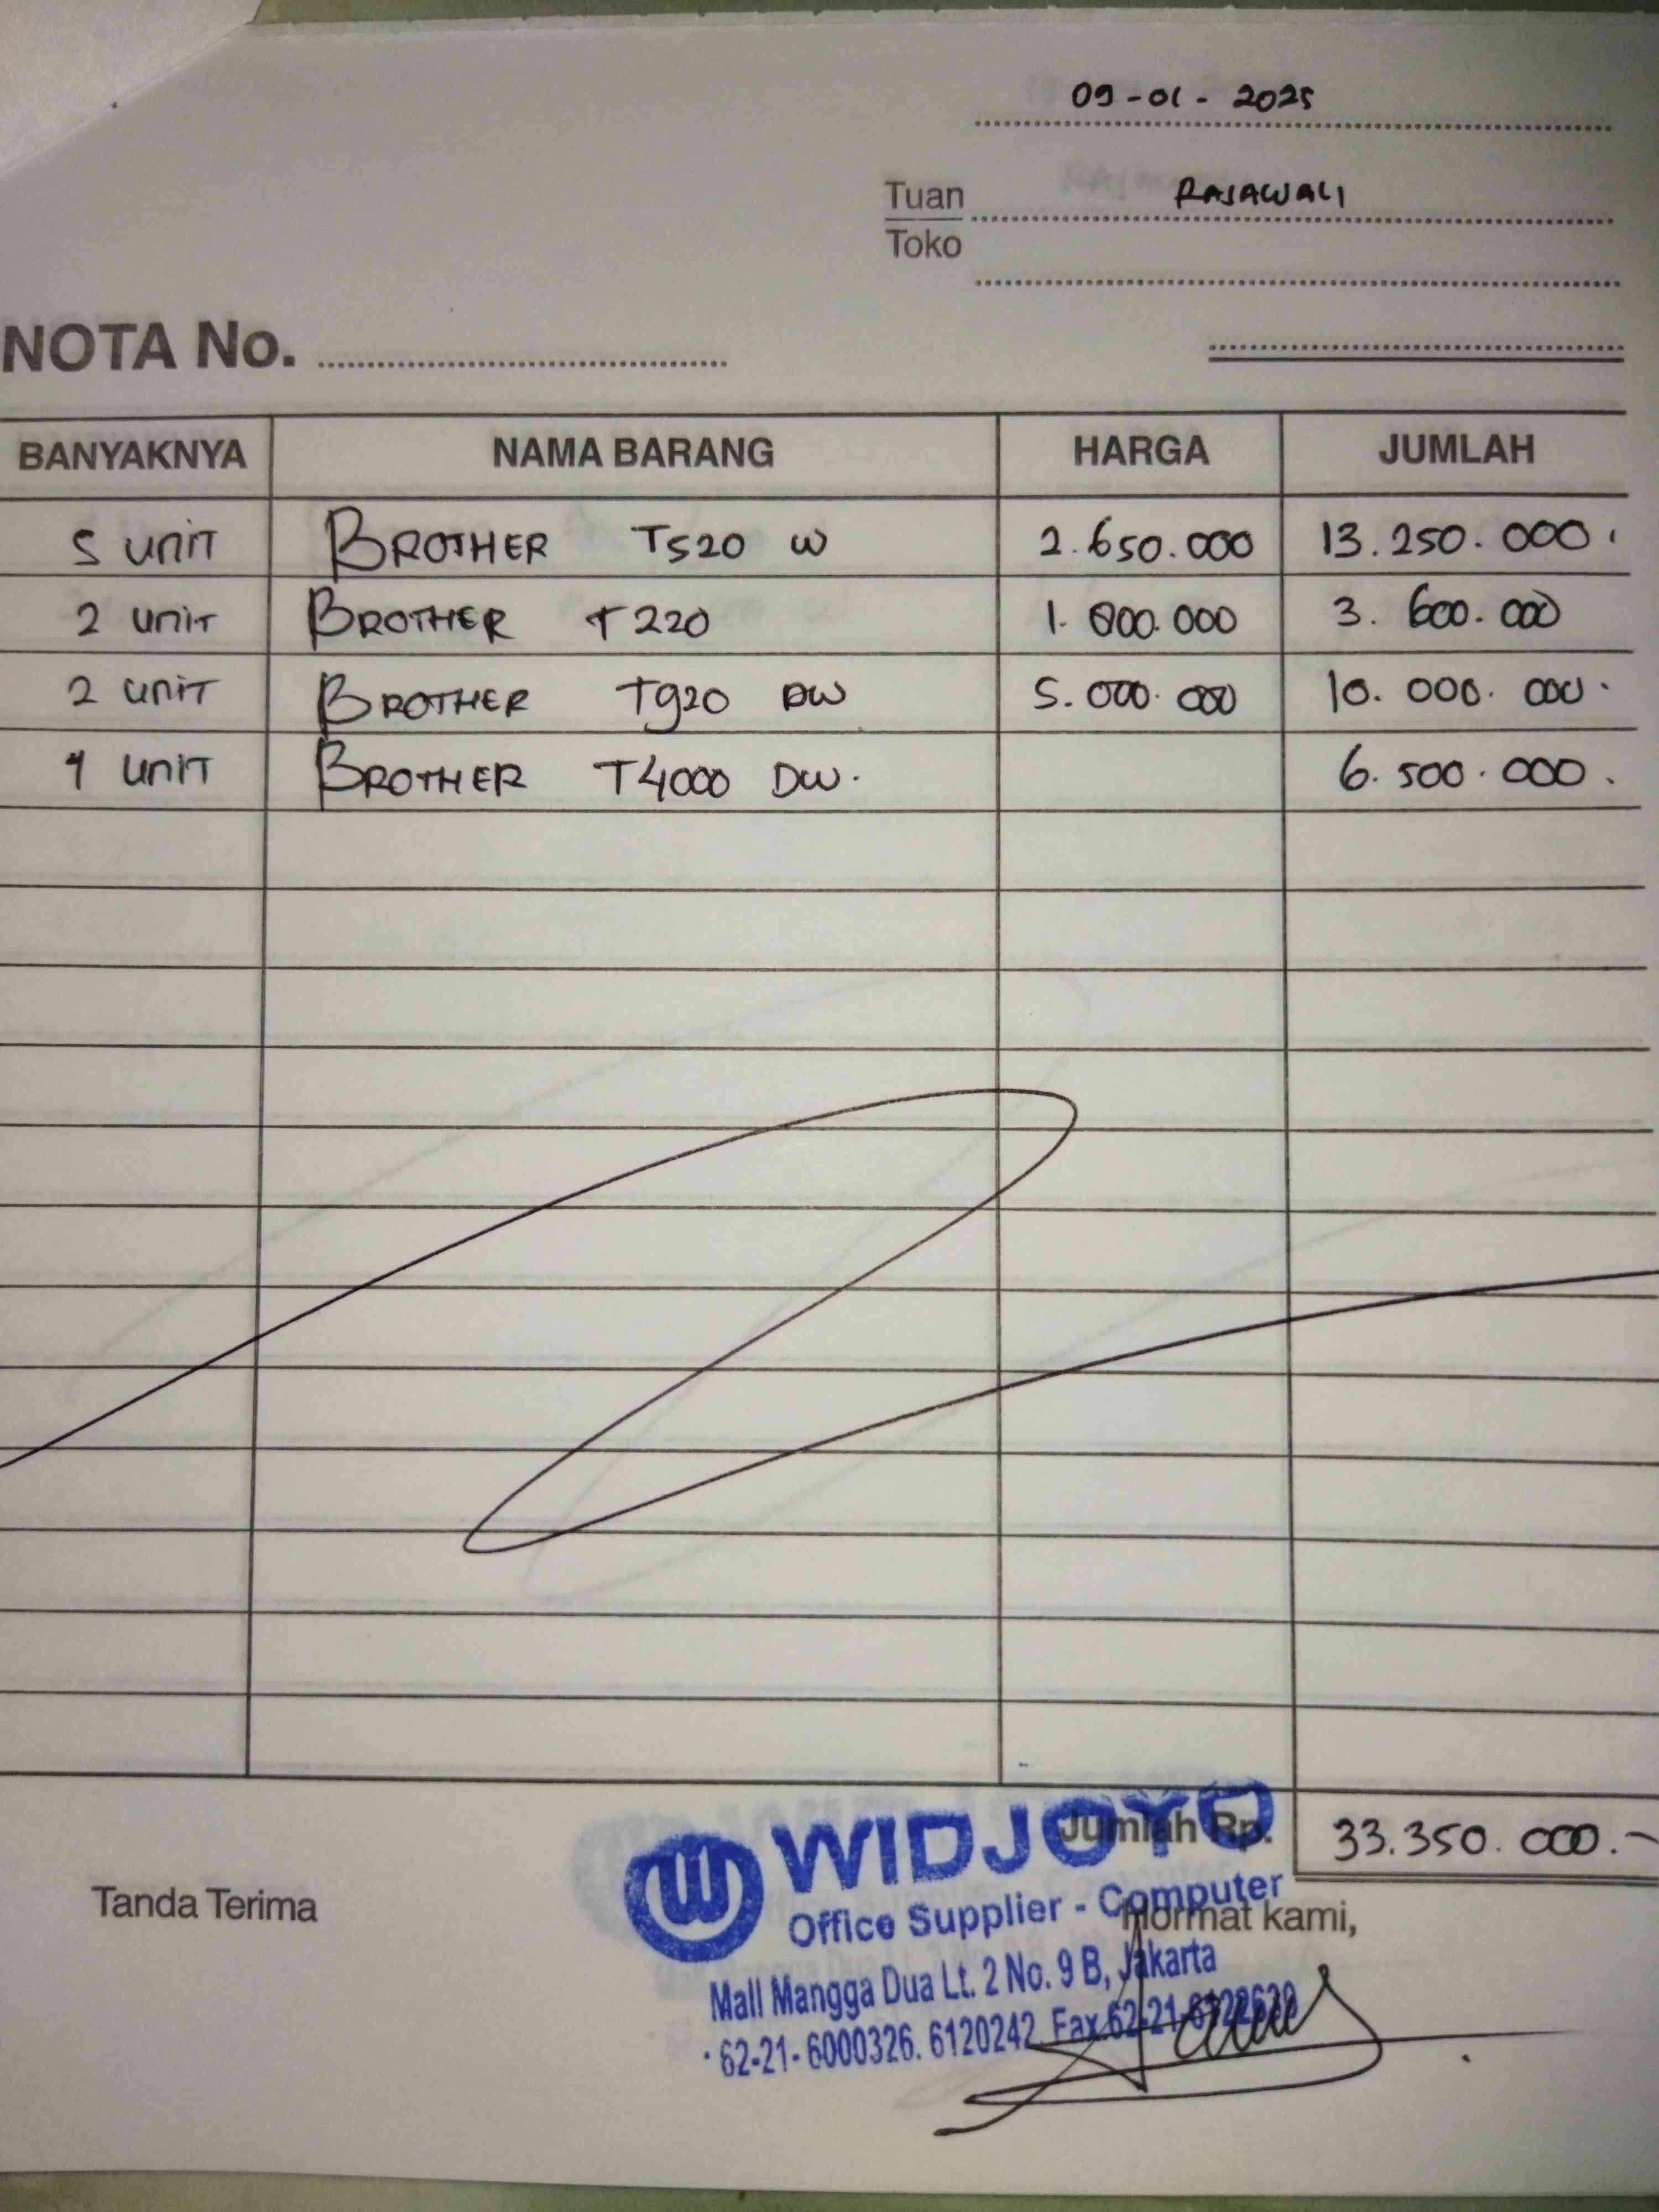 09-01-2025
Tuan RAJAWALI
Toko
NOTA No.
BANYAKNYA NAMA BARANG HARGA JUMLAH
5 UNIT BROTHER T520 W 2.650.000 13.250.000.
2 UNIT BROTHER T220 1.800.000 3.600.000
2 UNIT BROTHER T920 DW 5.000.000 10.000.000.
1 UNIT BROTHER T4000 DW. 6.500.000.
Jumlah Rp. 33.350.000.-
WIDJOYO
Office Supplier - Computer
Mall Mangga Dua Lt. 2 No. 9 B, Jakarta
62-21-6000326. 6120242 Fax.62-21-
Tanda Terima
Hormat kami,